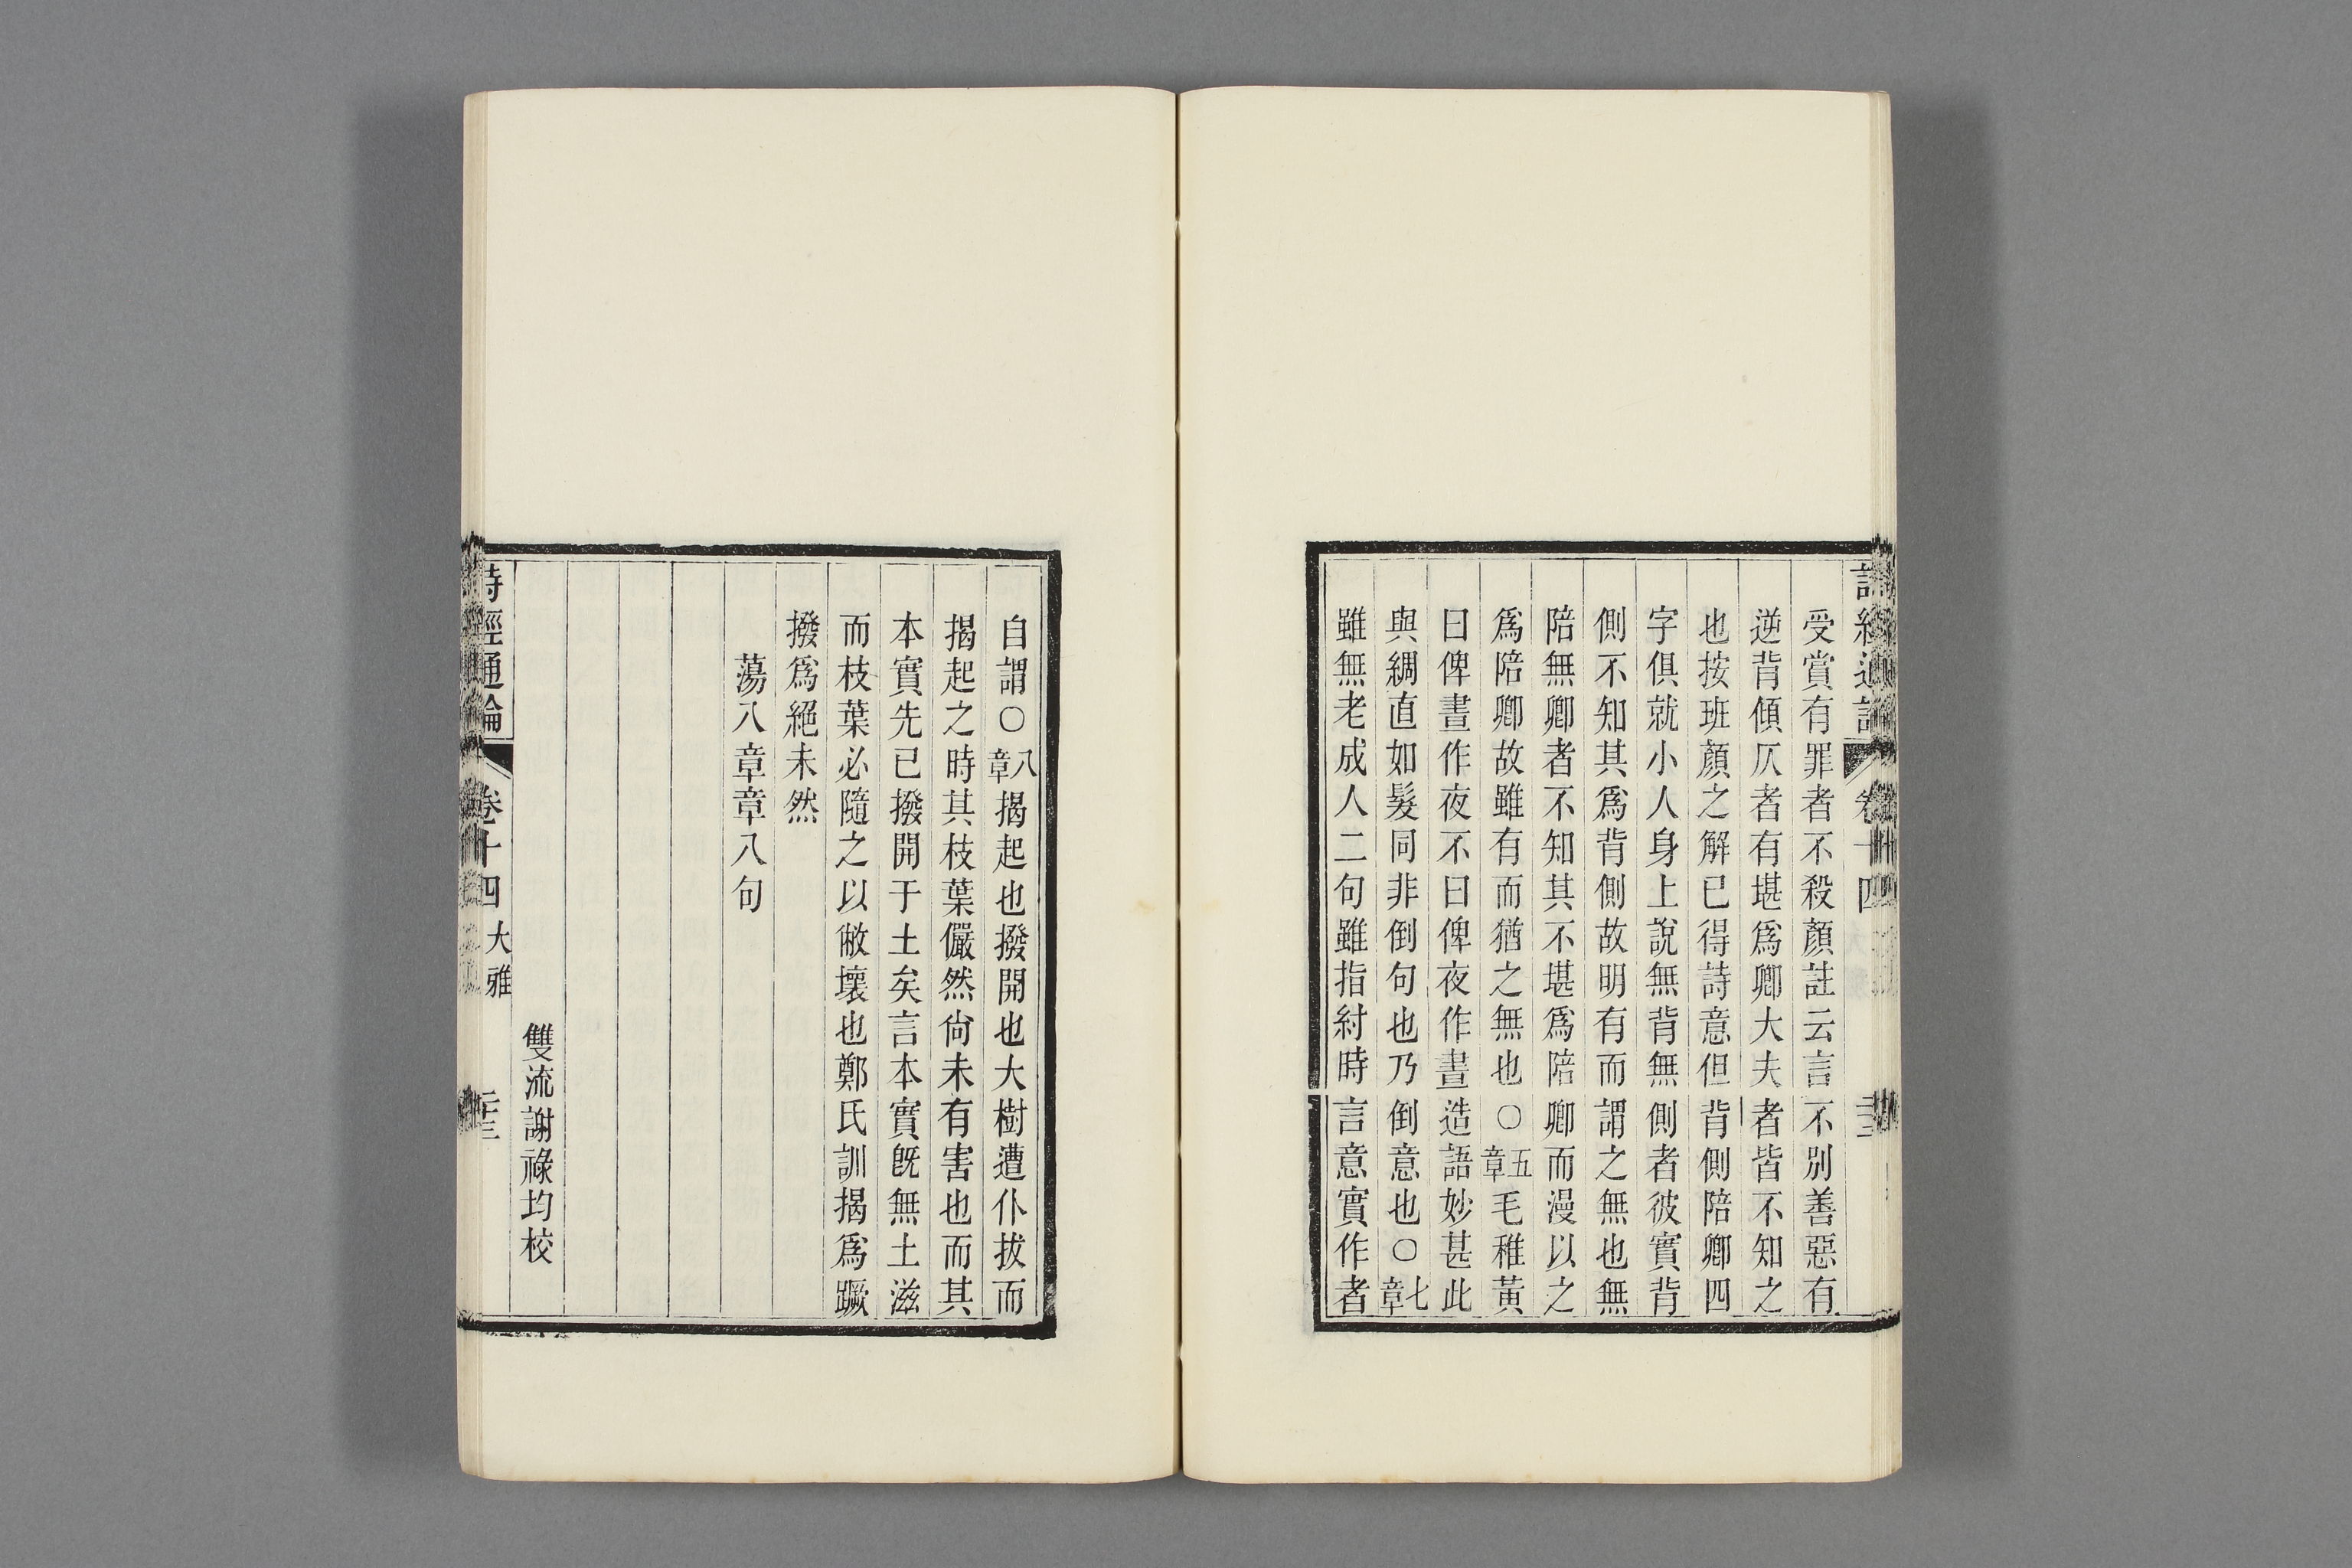 受賞有罪者不殺顏註云言不別善惡有
逆背傾仄者有堪爲卿大夫者皆不知之
也按班顏之解已得詩意但背側陪卿四
字俱就小人身上說無背無側者彼實背
側不知其爲背側故明有而謂之無也無
陪無卿者不知其不堪爲陪卿而漫以之
爲陪卿故雖有而猶之無也○五章毛稚黃
曰俾晝作夜不曰俾夜作晝造語妙甚此
與綢直如髮同非倒句也乃倒意也○七章
雖無老成人二句雖指紂時言意實作者
自謂○八章揭起也撥開也大樹遭仆拔而
揭起之時其枝葉儼然尙未有害也而其
本實先已撥開于土矣言本實旣無土滋
而枝葉必隨之以敝壞也鄭氏訓揭爲蹶
撥爲絕未然
蕩八章章八句
雙流謝祿均校
詩經通論 卷十四 大雅